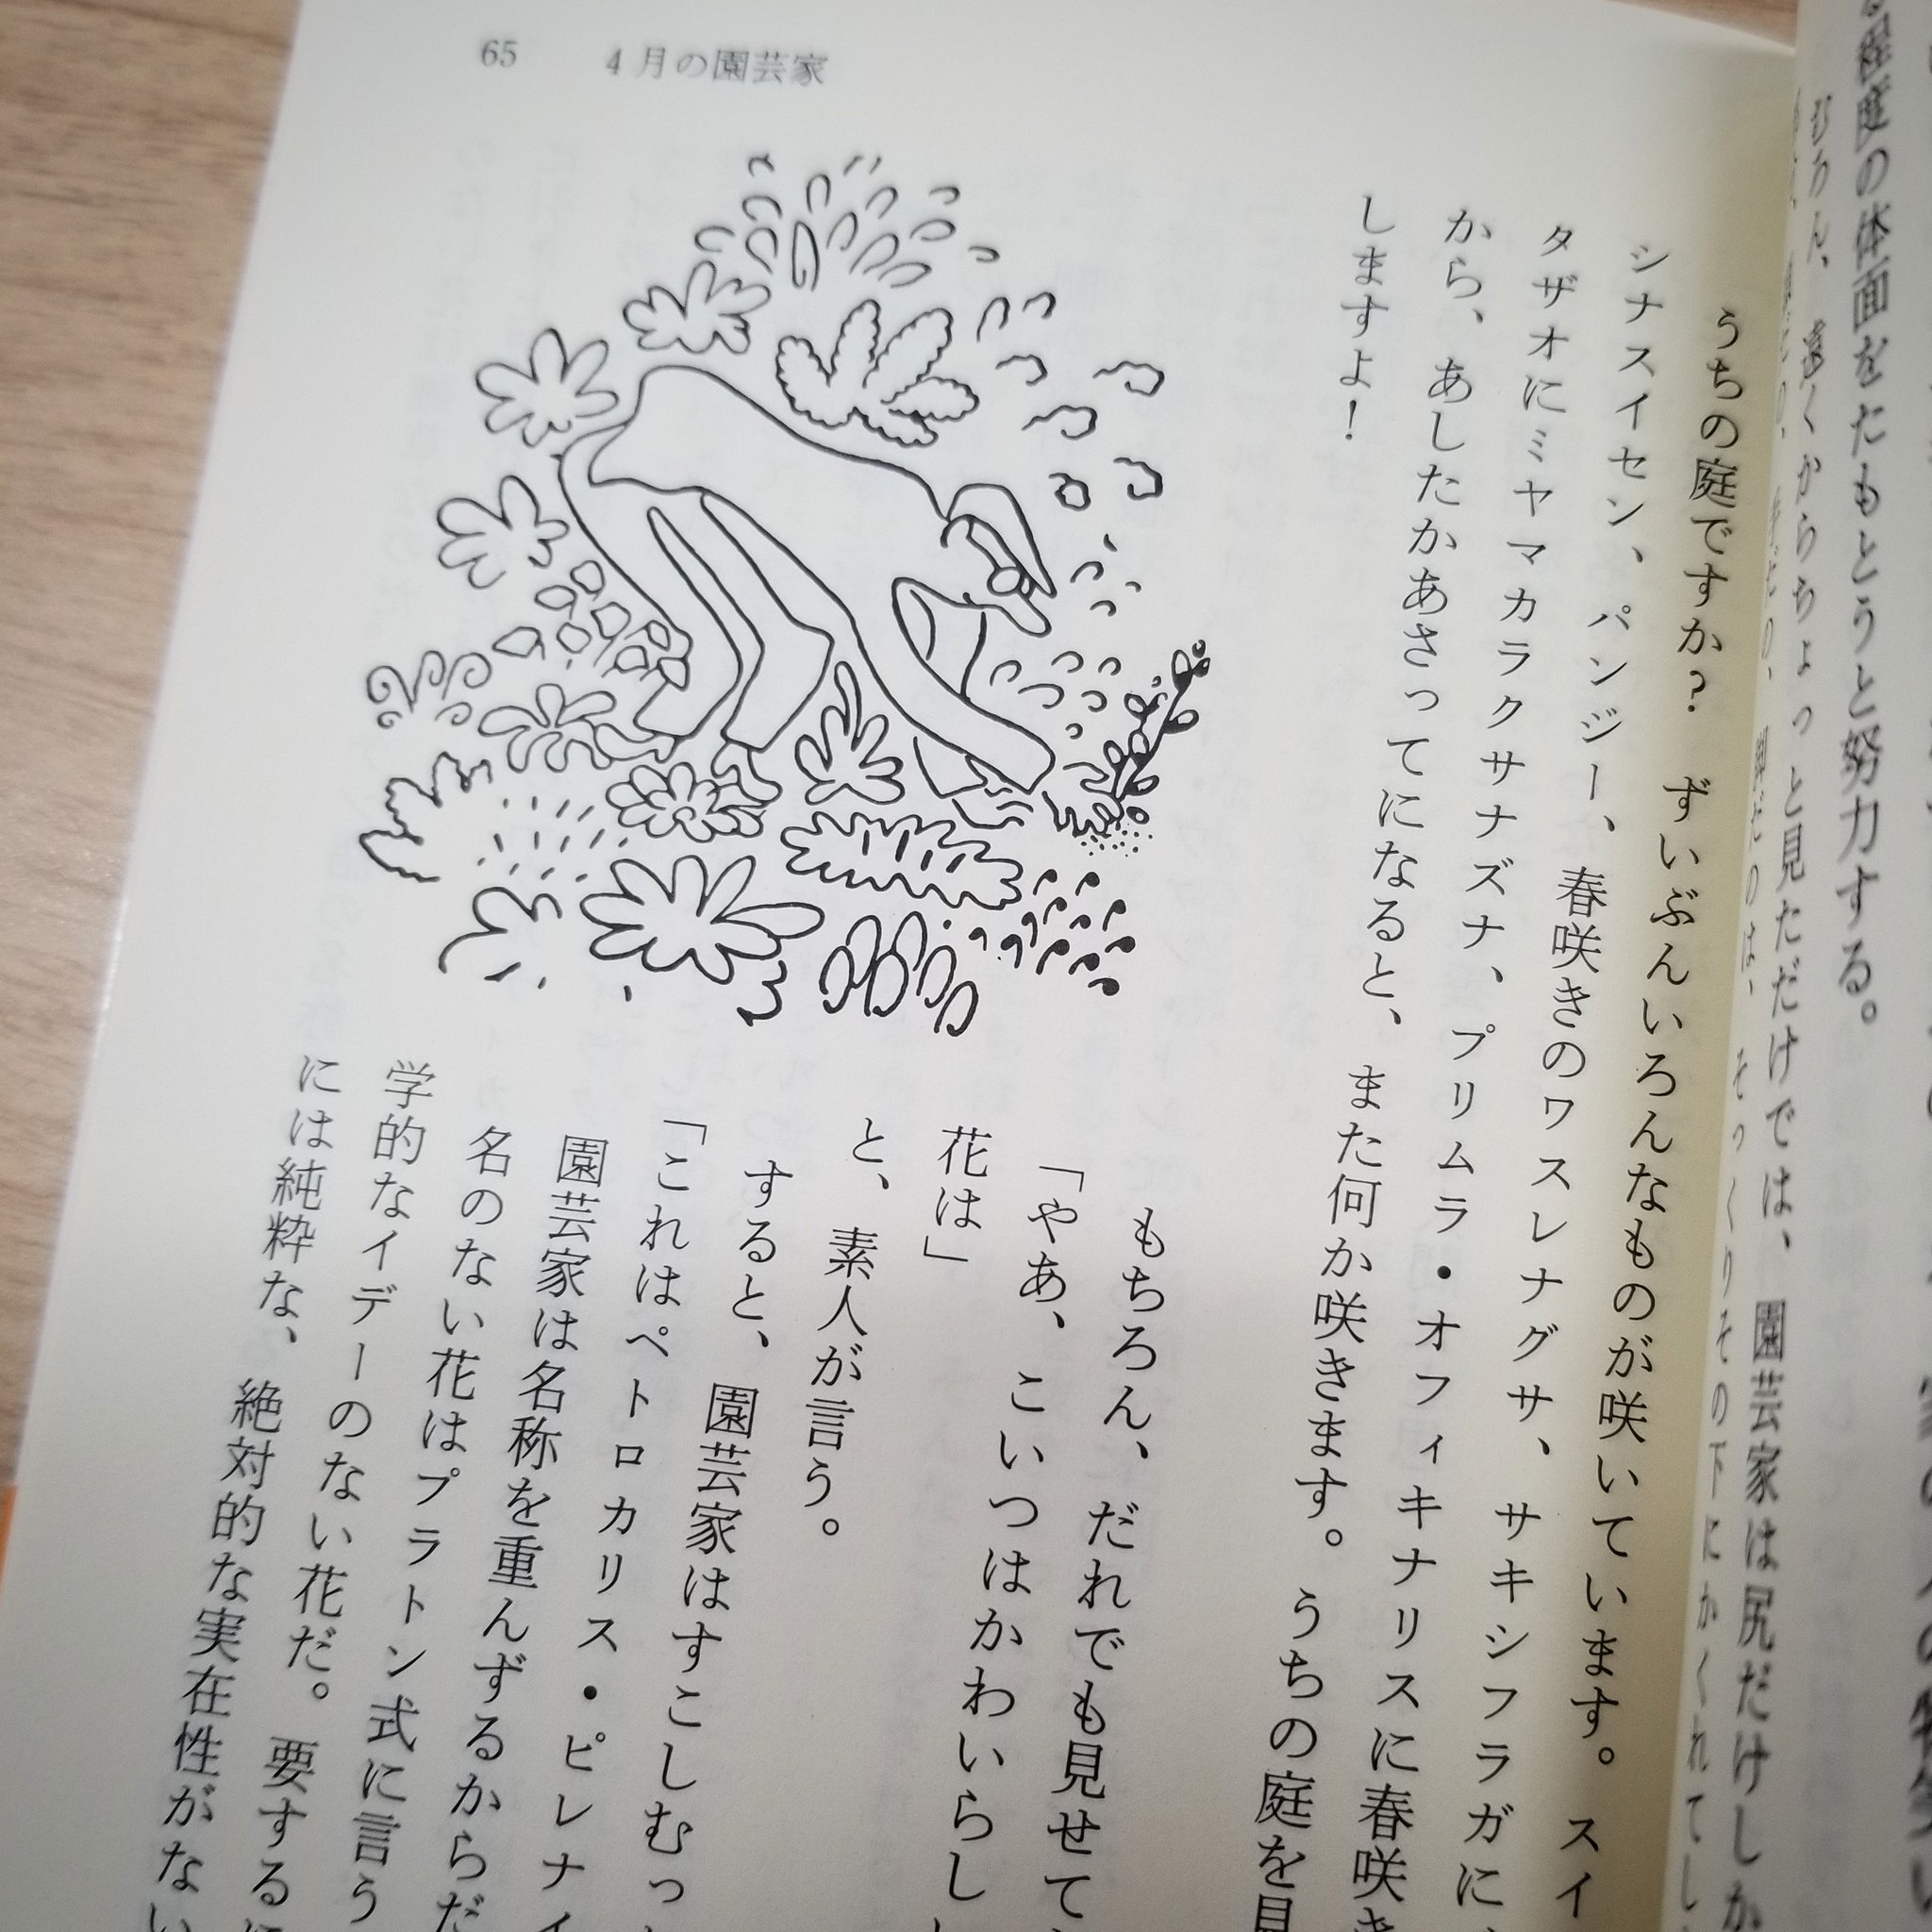 65　4月の園芸家
庭の体面をたもとうと努力する。
むろん、遠くからちょっと見ただけでは、園芸家は尻だけしか
そっくりその下にかくれてし
うちの庭ですか？　ずいぶんいろんなものが咲いています。スイ
シナスイセン、パンジー、春咲きのワスレナグサ、サキシフラガに、
タザオにミヤマカラクサナズナ、プリムラ・オフィキナリスに春咲き
から、あしたかあさってになると、また何か咲きます。うちの庭を見
しますよ！
もちろん、だれでも見せて
「やあ、こいつはかわいらし
花は」
と、素人が言う。
すると、園芸家はすこしむっ
「これはペトロカリス・ピレナイ
園芸家は名称を重んずるからだ
名のない花はプラトン式に言う
学的なイデーのない花だ。要するに
には純粋な、絶対的な実在性がない